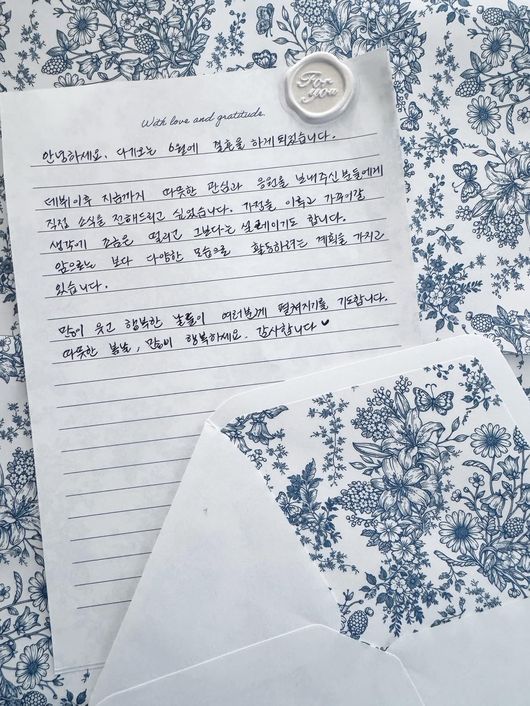 With love and gratitude.
For you
안녕하세요. 다가오는 6월에 결혼을 하게 되었습니다.
데뷔이후 지금까지 따뜻한 관심과 응원을 보내주신 분들에게
직접 소식을 전해드리고 싶었습니다. 가정을 이루고 가꾸어갈
생각에 조금은 떨리고 그보다는 설레이기도 합니다.
앞으로는 보다 다양한 모습으로 활동하려는 계획을 가지고
있습니다.
많이 웃고 행복한 날들이 여러분께 펼쳐지기를 기도합니다.
따뜻한 봄날, 많이 행복하세요. 감사합니다 ♥